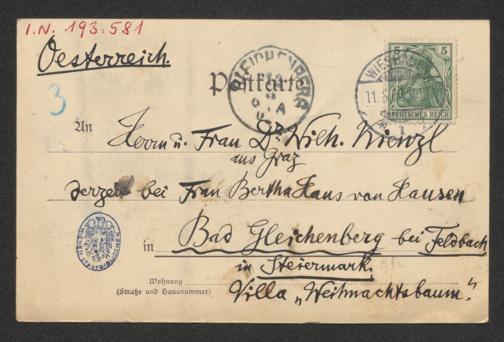 I.N. 193.581
Oesterreich
3
5 5
DEUTSCHES REICH
GLEICHENBERG
Postkarte
An Herrn u. Frau Dr. Wilh. Kienzl
aus Graz
derzeit bei Frau Bertha Hans von Hausen
in Bad Gleichenberg bei Feldbach
in Steiermark.
Wohnung
(Straße und Hausnummer)
Villa „Weihnachtsbaum".